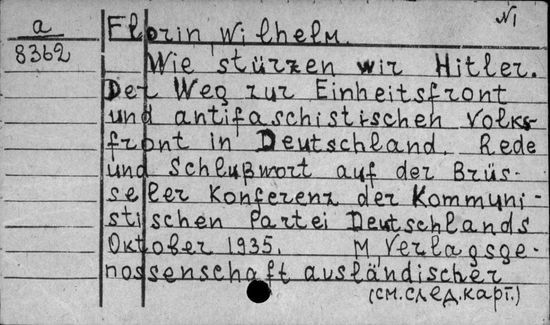 a
8362
N1
Florin, Wilhelm.
Wie stürzen wir Hitler.
Der Weg zur Einheitsfront
und antifaschistischen Volks-
front in Deutschland. Rede
und Schlußwort auf der Brüs-
seler Konferenz der Kommuni-
stischen Partei Deutschlands
Oktober 1935. M, Verlagsge-
nossenschaft ausländischer
(см. след. карт.)